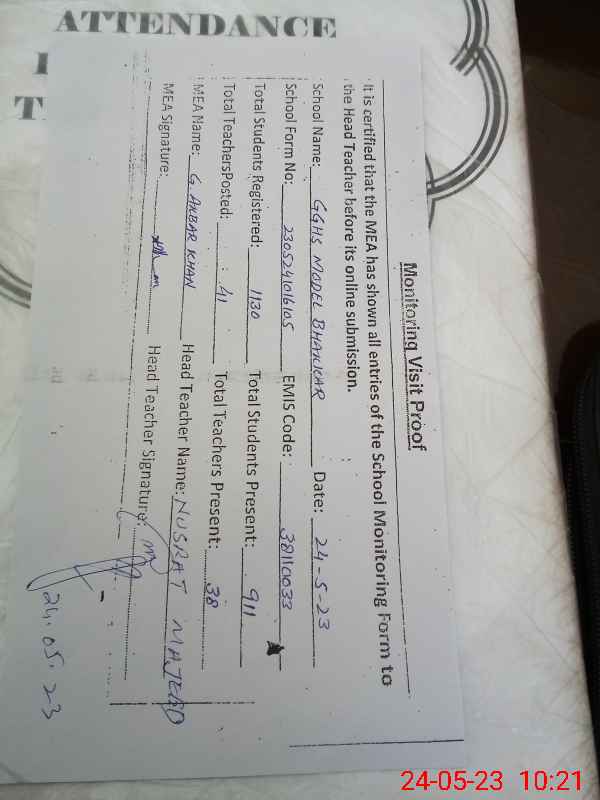 ATTENDANCE
Monitoring Visit Proof
It is certified that the MEA has shown all entries of the School Monitoring Form to
the Head Teacher before its online submission.
School Name: GGHS MODEL BHAKKAR Date: 24-5-23
School Form No: 230524016105 EMIS Code: 38110033
Total Students Registered: 1130 Total Students Present: 911
Total TeachersPosted: 41 Total Teachers Present: 38
MEA Name: G. AKBAR KHAN Head Teacher Name: NUSRAT MAJEED
MEA Signature: Head Teacher Signature:
24.05.23
24-05-23 10:21